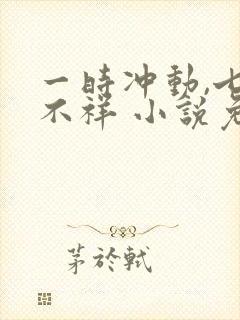 一時冲動,七
不祥 小說免
茅於軾